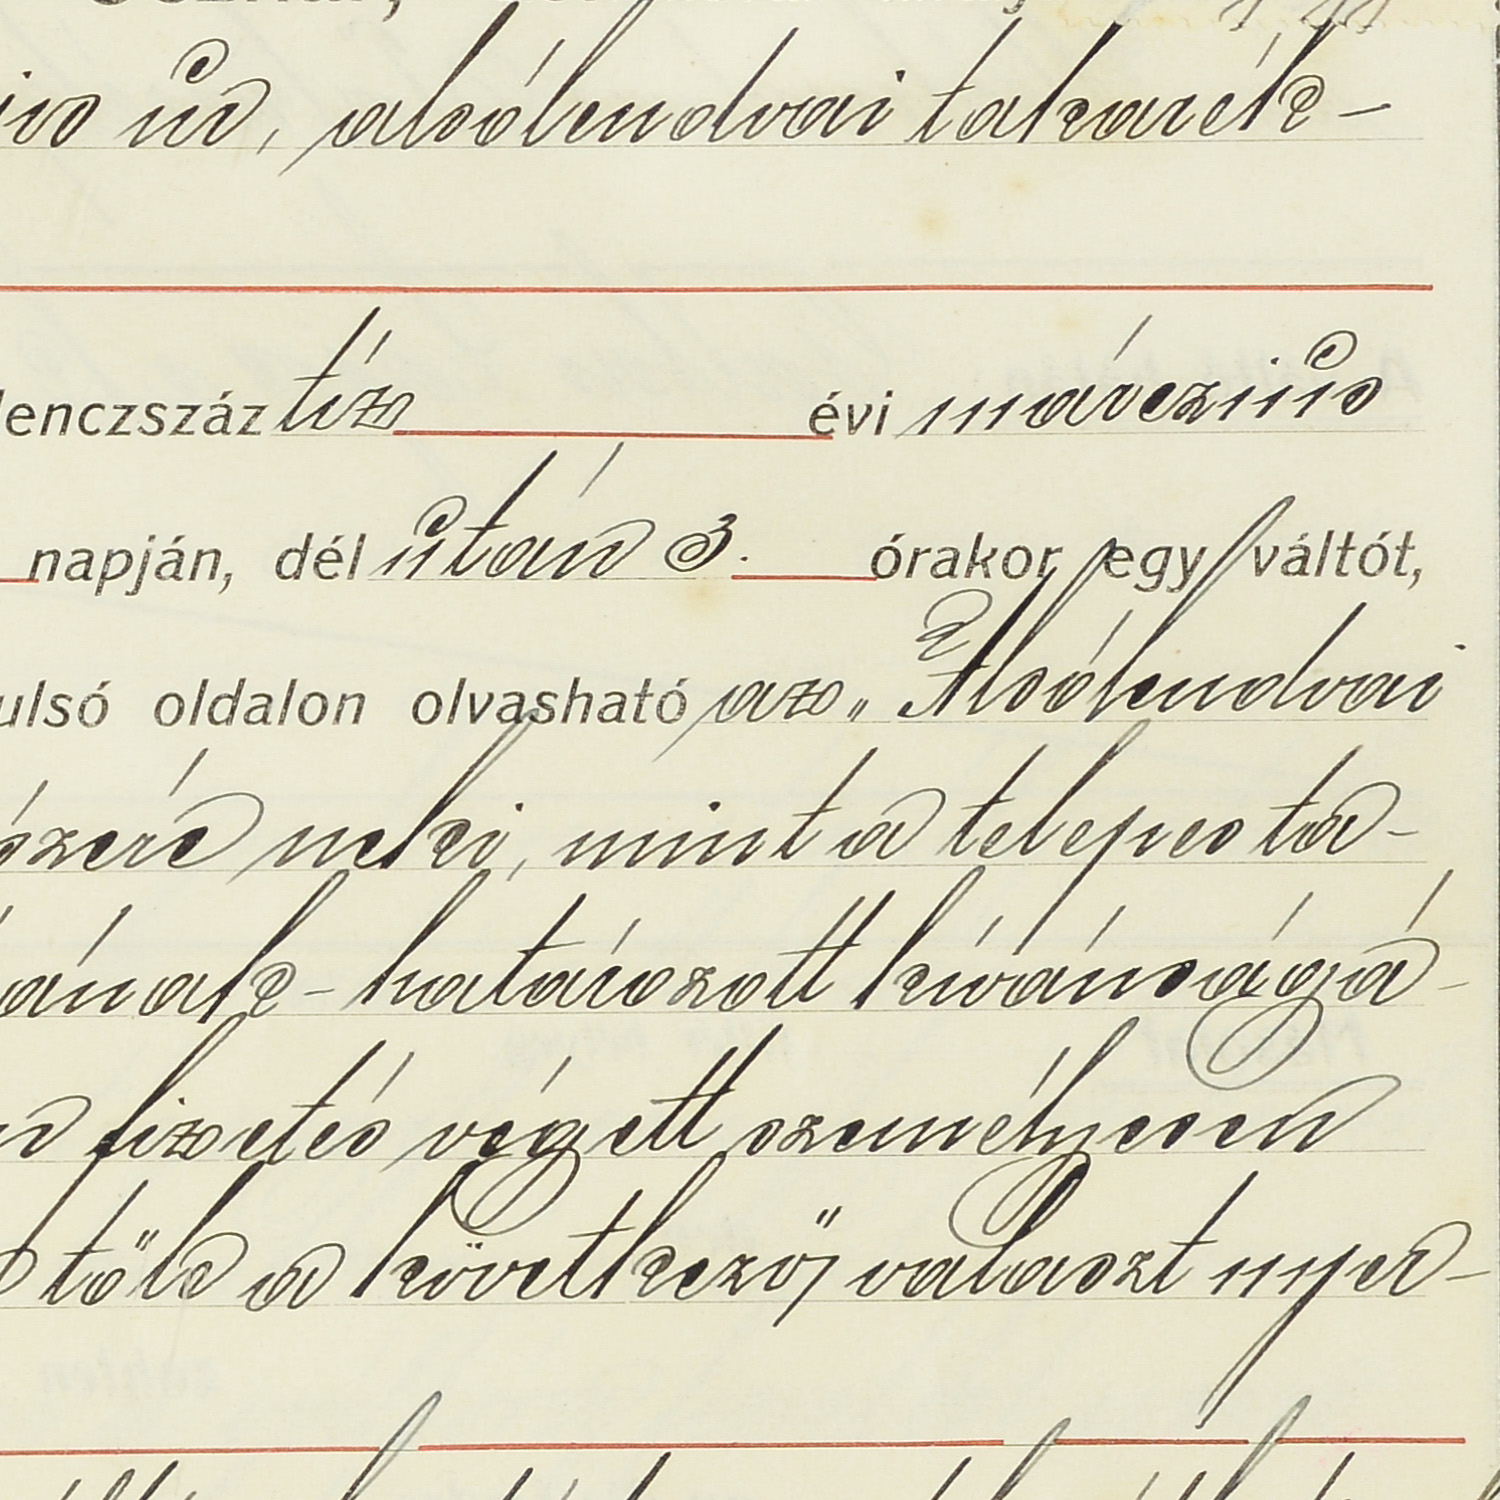 úr, alsólendvai takarék-
lenczszáz tíz évi márczius
napján, dél után 3. órakor egy váltót,
ulsó oldalon olvasható az „Alsólendvai
neki, mint a telepes tá-
ának - határozott kívánságá-
fizetés végett személyesen
tőle a következő választ nyer-